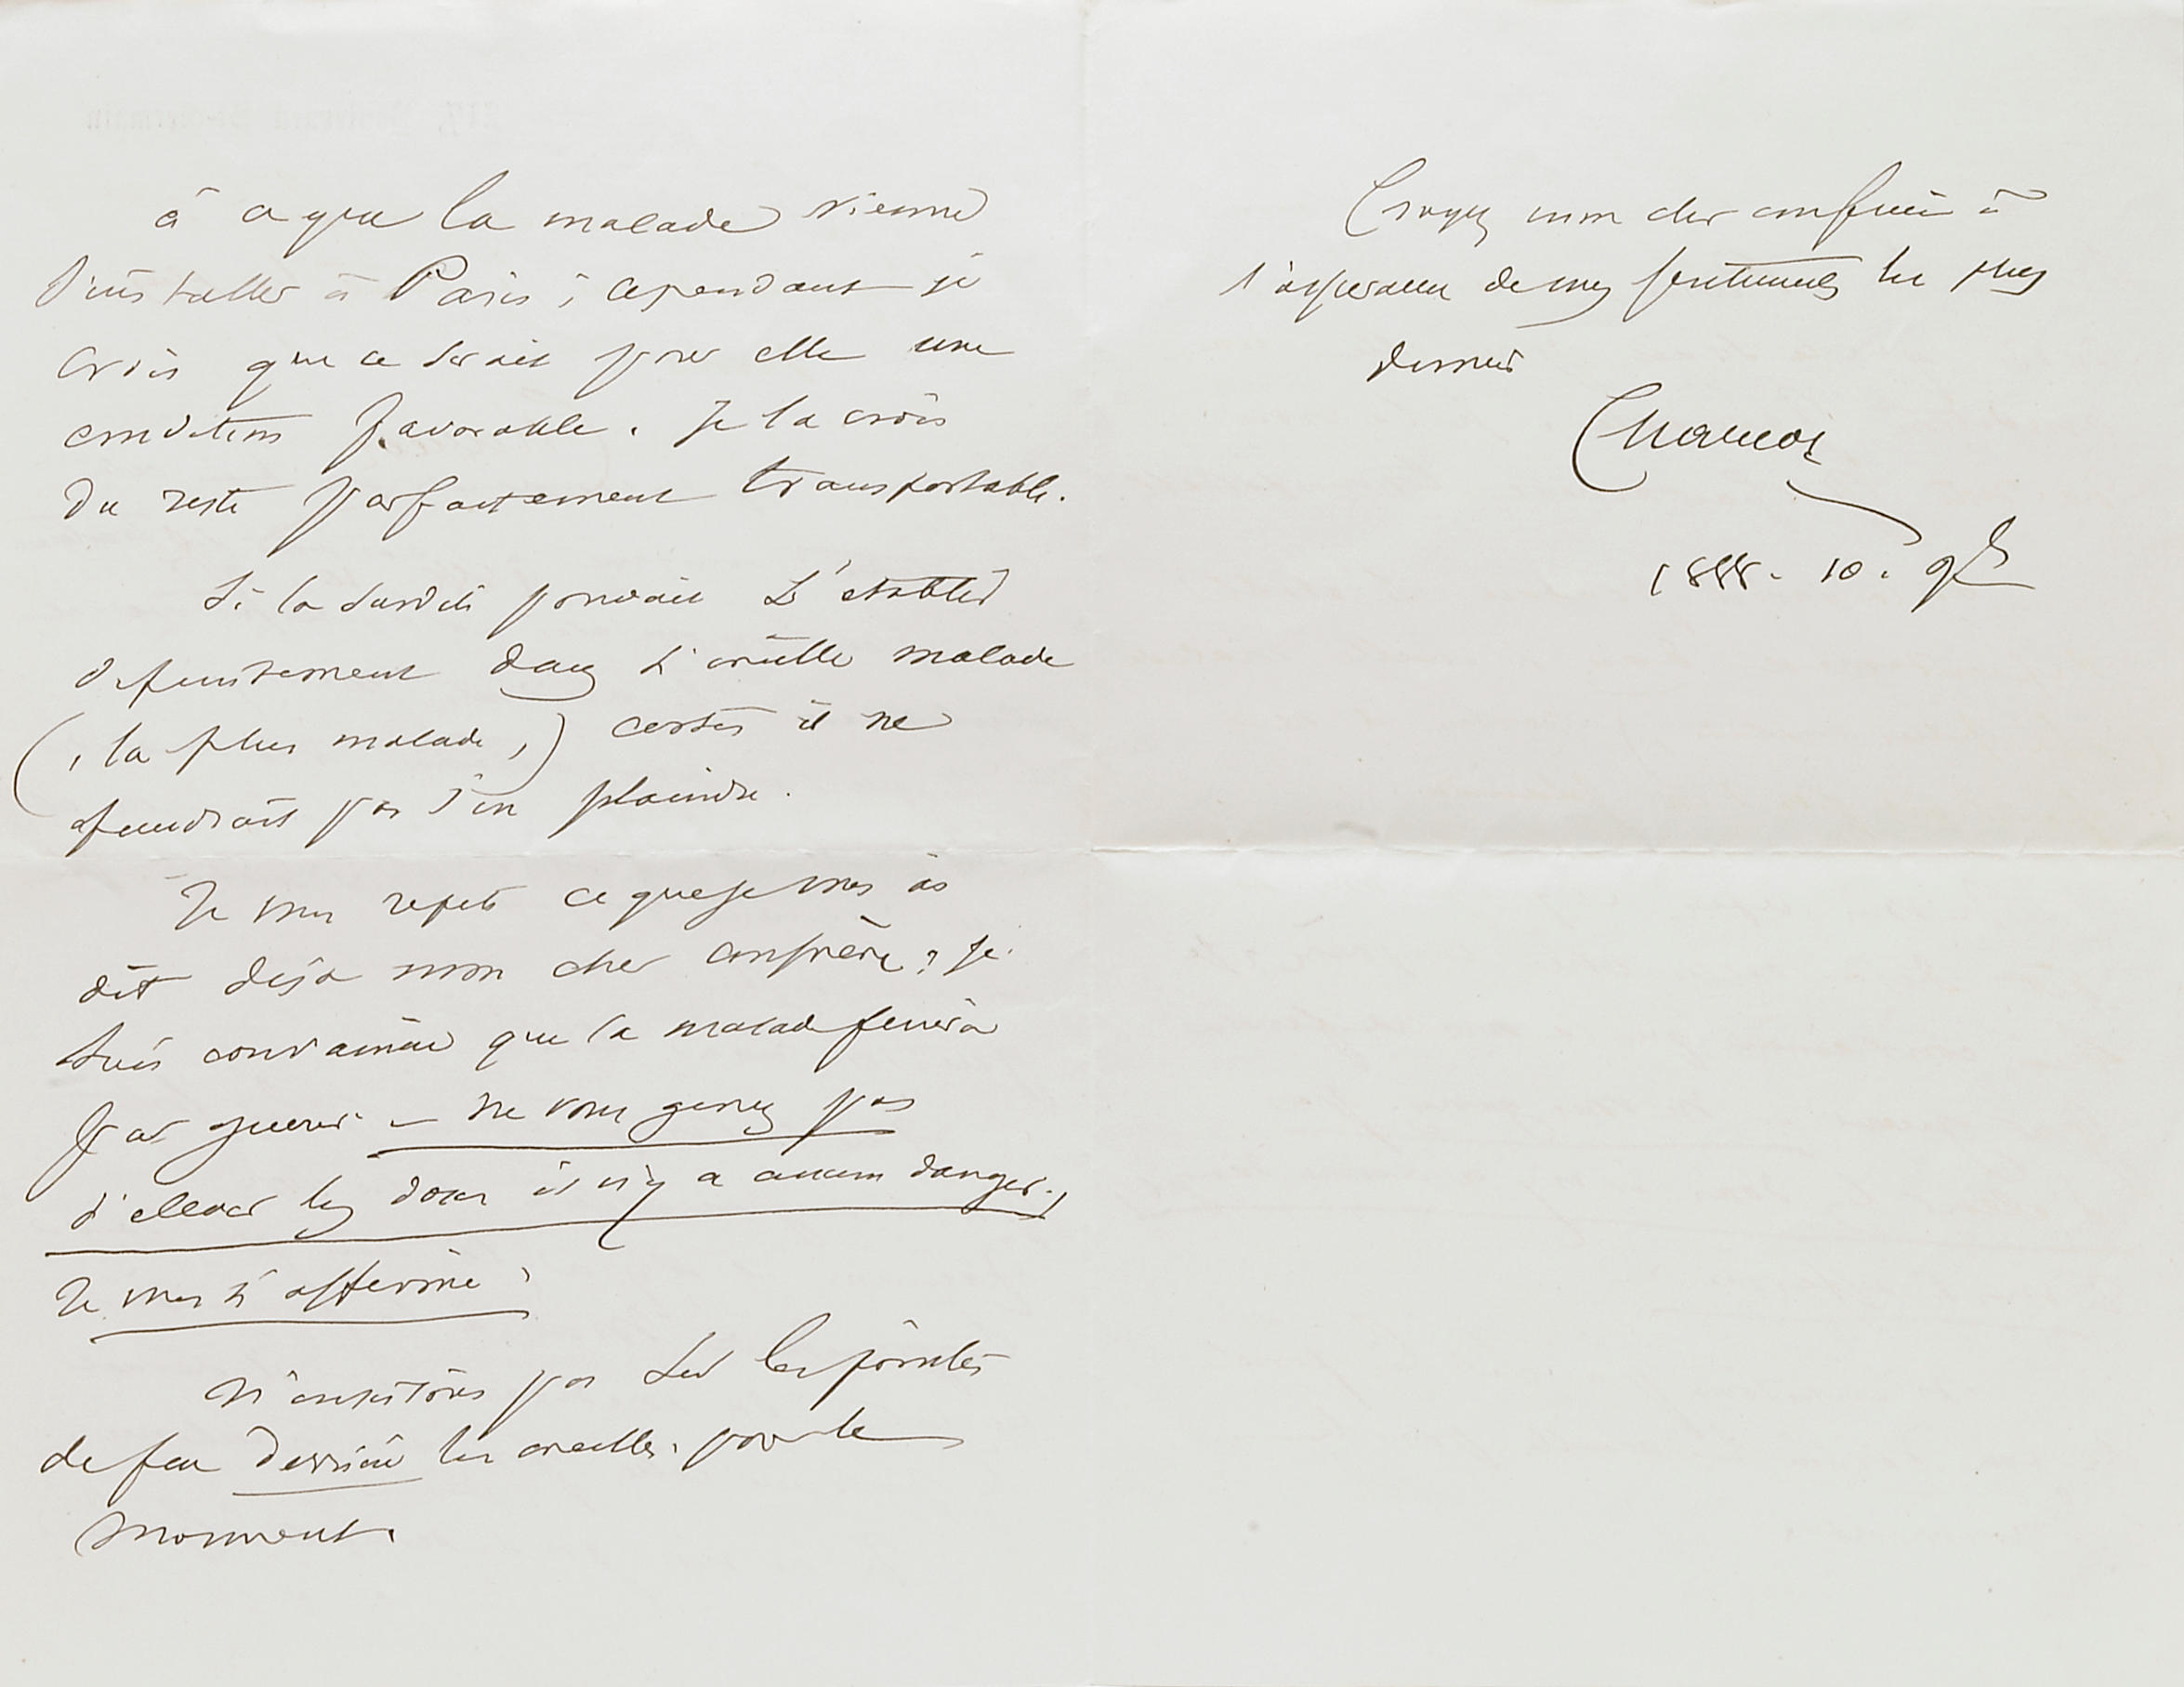 à ce que la malade vienne
s'installer à Paris ; cependant je
crois que ce serait pour elle une
condition favorable. Je la crois
du reste parfaitement transportable.
Si la surdité pouvait s'etablir
definitivement dans l'oreille malade
(, la plus malade,) certes il ne
faudrait pas s'en plaindre.
Je vous repete ce que je vous ai
dit déja mon cher confrère ; je
suis convaincu que la malade finira
par guerir – ne vous genez pas
d'elever les doses il n'y a aucun danger,
Je vous l'affirme ;
N'insistons pas sur les pointes
de feu derrière les oreilles. pour le
moment.
Croyez mon cher confrère à
l'assurance de mes sentiments les plus
Charcot
1888. 10. 9b